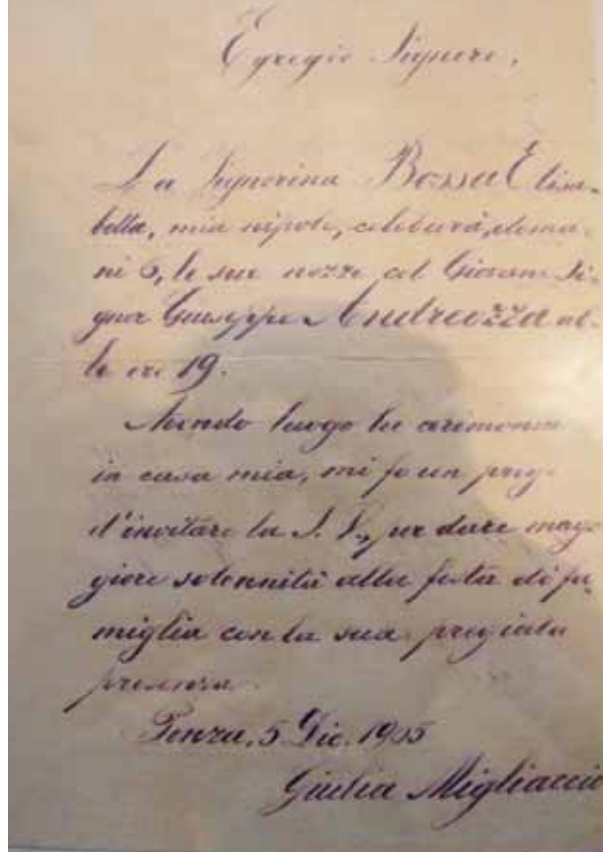 Egregio Signore,
La Signorina Bossa Elisa-
bella, mia nipote, celebrerà, doma-
ni 6, le sue nozze col Giovane Si-
gnor Giuseppe Andreozza al-
le ore 19.
Avendo luogo la cerimonia
in casa mia, mi fo un preg
d'invitare la S. V., per dare mag
giore solennità alla festa di fa
miglia con la sua pregiata
presenza.
5 Dic. 1905
Giulia Migliaccio